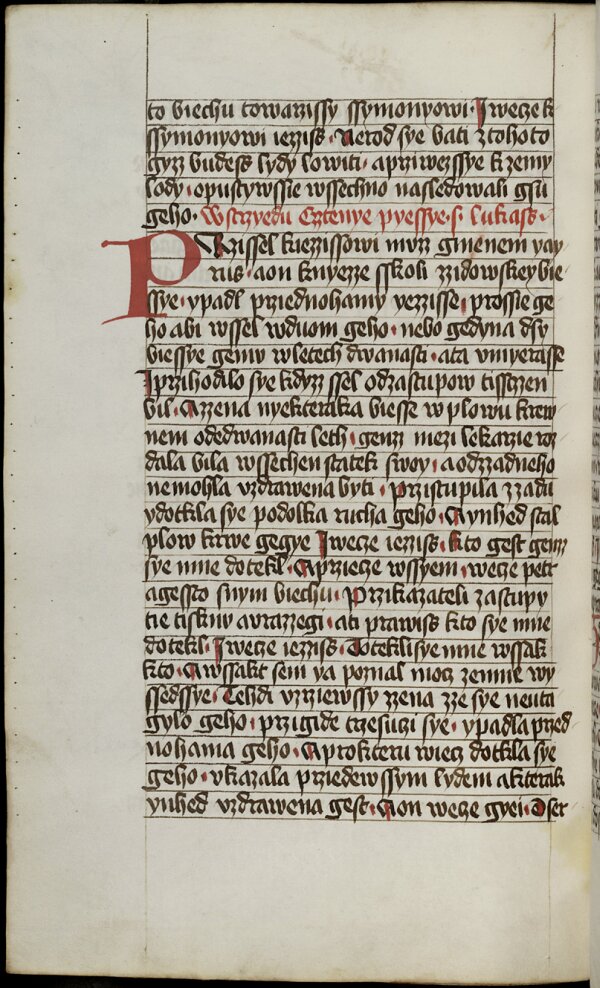 to biechu towarzissy ssymonyowi · J wecze k
ssymonyowi iezziss · Nerod sye bati z tohoto
gyzz budess lydy lowiti · a priwezssye k zemy
lody · opustywssie wssechno nasledowali gsu
geho · W strzyedu Cztenye pyessye · s · lukass ·
PRzissel k iezzissowi muzz gmenem yay
rus · a on knyezze sskoli zzidowskey bie
ssye · ypadl przied nohamy yezzisse · prossie ge
ho abi wssel w duom geho · nebo gedyna dsy
biessye gemu w letech dwanasti · a ta umyerasse
J przihodilo sye kdyzz ssel od zastupow tisstzen
bil · A zzena nyekteraka biesse w plowu krew
nem od edwanasti leth · genzz mezi lekarzie roz
dala bila wssechen statek swoy · a od zzadneho
nemohla uzdrawena byti · przistupila z zadu
ydotkla sye podolka rucha geho · A ynhed stal
plow krwe gegye J wecze iezziss · kto gest genzz
sye mne dotekl · A przi ecze wssyem · wecze petr
a gessto s nym biechu · Przikazateli zastupy
tie tisknu a urazzegi · a ti prawiss kto sye mne
dotekl · J wecze iezziss · Dotekli sye mne wssak
kto · A wssakt sem ya poznal mocz ze mne wy
ssedssye · Tehdi uzrziewssy zzena zze sye neuta
gylo geho · przigide trzesuczi sye · ypadla przed
nohama geho · A pro kteru wiecz dotkla sye
geho · ukazala prziedewssym lydem a kterak
ynhed uzdrawena gest · A on wecze gyei · Dser